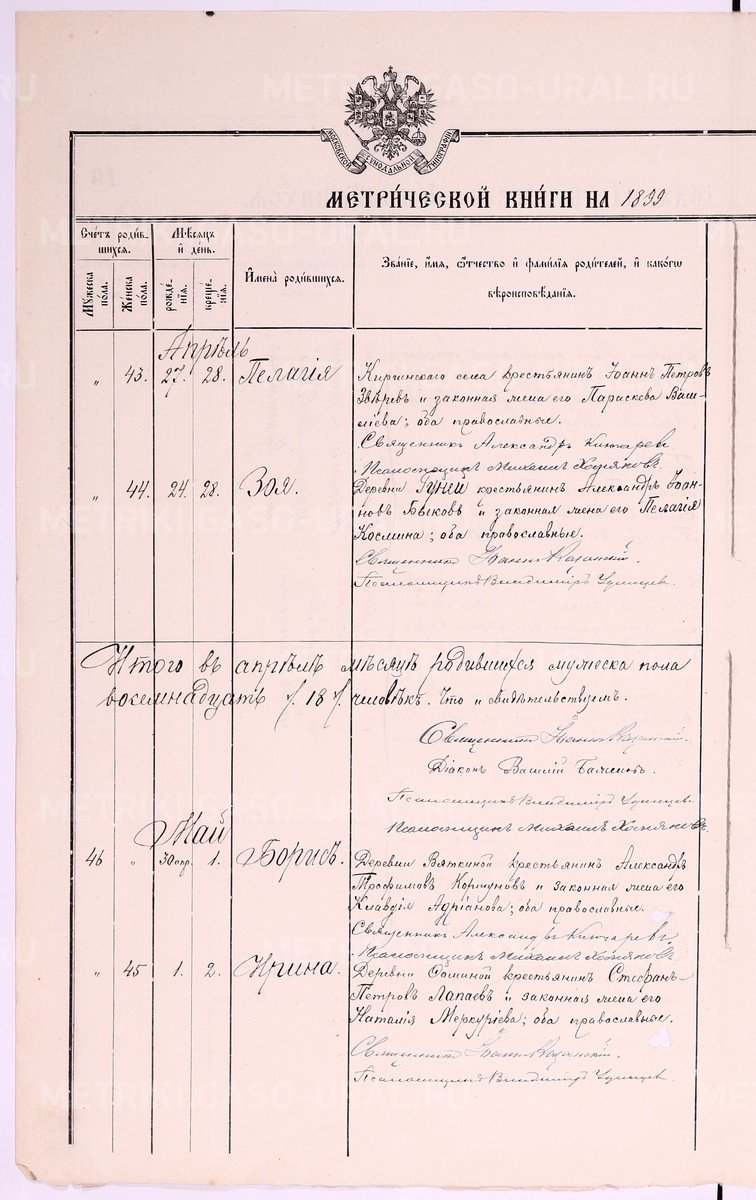 METRIKI.GASO-URAL.RU
МОСКОВСКОЙ СѴНОДАЛЬНОЙ ТИПОГРАФІИ
МЕТРИ́ЧЕСКОЙ КНИ́ГИ НА 1899
Сче́тъ роди́в-
шихся.
Му́жеска пола.
Же́нска пола.
Мѣ́сяцъ
и҆ де́нь.
рожде́-
нїѧ.
креще́-
нїѧ.
И҆мена̀ роди́вшихся.
Зва́нїе, и҆́мѧ, ѻ҆́тчество и҆ фами́лїѧ роди́телей, и҆ како́гѡ
вѣроисповѣ́данїѧ.
Апрѣль
" 43. 27. 28. Пелагія
Киргинскаго села крестьянинъ Іоаннъ Петровъ
Звѣревъ и законная жена его Параскева Васи-
ліева; оба православные.
Священникъ Александръ Ключаревъ
Псаломщикъ Михаилъ Хохряковъ.
" 44. 24. 28. Зоя.
Деревни Гуней крестьянинъ Александръ Іоан-
новъ Быковъ и законная жена его Пелагія
Космина; оба православные.
Священникъ Іоаннъ Казанскій.
Псаломщикъ Владиміръ
Итого въ апрѣлѣ мѣсяцѣ родившихся мужеска пола
восемнадцать /. 18 /. человѣкъ. Что и свидѣтельствуемъ.
Священникъ Іоаннъ Казанскій.
Діаконъ Василій
Псаломщикъ Владиміръ
Псаломщикъ Михаилъ Хохряковъ.
Май
46 " 30 апр. 1. Борисъ.
Деревни Вяткиной крестьянинъ Александръ
Трофимовъ Коршуновъ и законная жена его
Клавдія Адріанова; оба православные.
Священникъ Александръ Ключаревъ,
Псаломщикъ Михаилъ Хохряковъ.
" 45 1. 2. Ирина.
Деревни Фоминой крестьянинъ Стефанъ
Петровъ Лапаевъ и законная жена его
Наталія Меркуріева; оба православные.
Священникъ Іоаннъ Казанскій.
Псаломщикъ Владиміръ